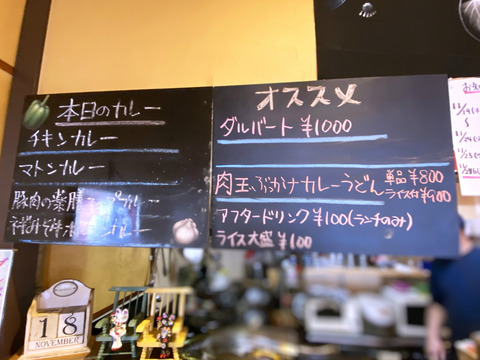 本日のカレー
チキンカレー
マトンカレー
豚肉の薬膳
カレー
オススメ
ダルバート ¥1000
肉玉ぶっかけカレーうどん 単品¥800
ライス付¥900
アフタードリンク¥100(ランチのみ)
ライス大盛¥100
18
NOVEMBER